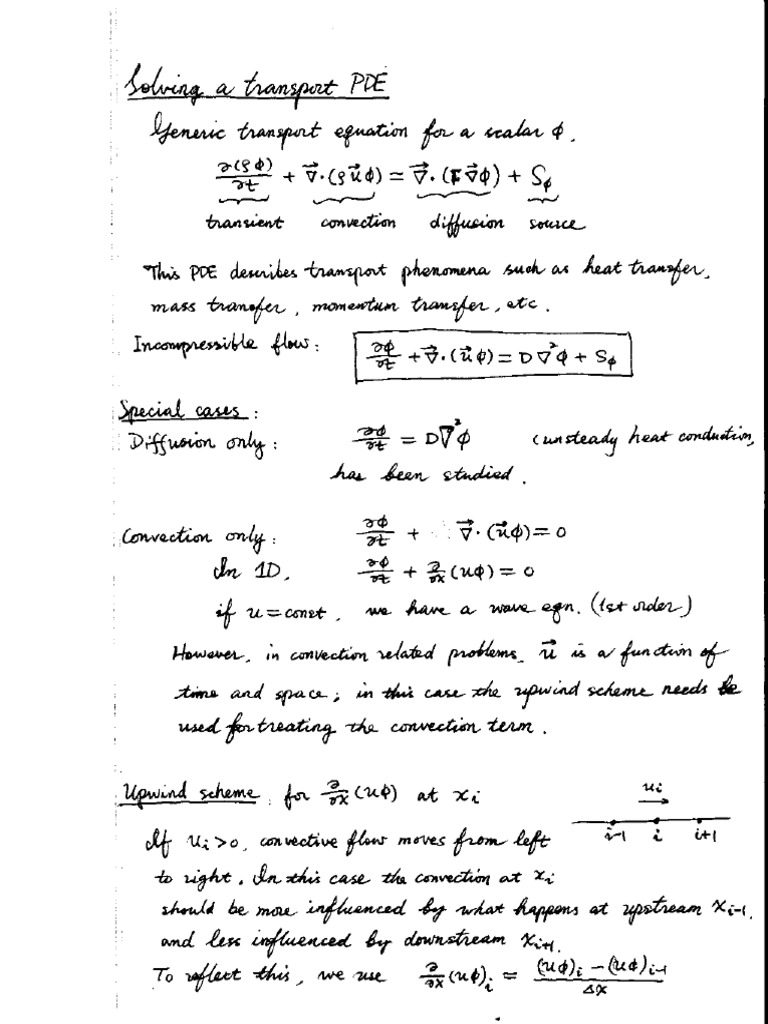 Solving a transport PDE
Generic transport equation for a scalar ϕ.
∂(ρϕ)/∂t + ∇⃗·(ρu⃗ϕ) = ∇⃗·(Γ∇⃗ϕ) + Sϕ
transient convection diffusion source
This PDE describes transport phenomena such as heat transfer,
mass transfer, momentum transfer, etc.
Incompressible flow: ∂ϕ/∂t + ∇⃗·(u⃗ϕ) = D∇²ϕ + Sϕ
Special cases:
Diffusion only: ∂ϕ/∂t = D∇²ϕ (unsteady heat conduction,
has been studied.
Convection only: ∂ϕ/∂t + ∇⃗·(u⃗ϕ) = 0
In 1D, ∂ϕ/∂t + ∂/∂x(uϕ) = 0
if u = const, we have a wave eqn. (1st order)
However, in convection related problems, u⃗ is a function of
time and space; in this case the upwind scheme needs be
used for treating the convection term.
Upwind scheme: for ∂/∂x(uϕ) at xᵢ
uᵢ
i-1 i i+1
If uᵢ>0, convective flow moves from left
to right. In this case the convection at xᵢ
should be more influenced by what happens at upstream xᵢ₋₁,
and less influenced by downstream xᵢ₊₁.
To reflect this, we use ∂/∂x(uϕ)ᵢ = ((uϕ)ᵢ-(uϕ)ᵢ₋₁)/Δx